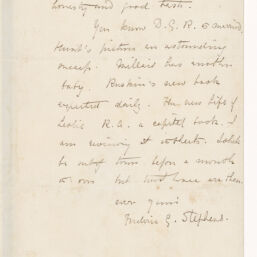 honesty and good taste.
You know D.G.R. is married,
Hunt's picture an astonishing
success. Millais has another
baby. Ruskin's new book
expected daily. The new Life of
Leslie R.A. a capital book. I
am reviewing it at
be out of town before a month
is over but
ever yours
Frederic G. Stephens.